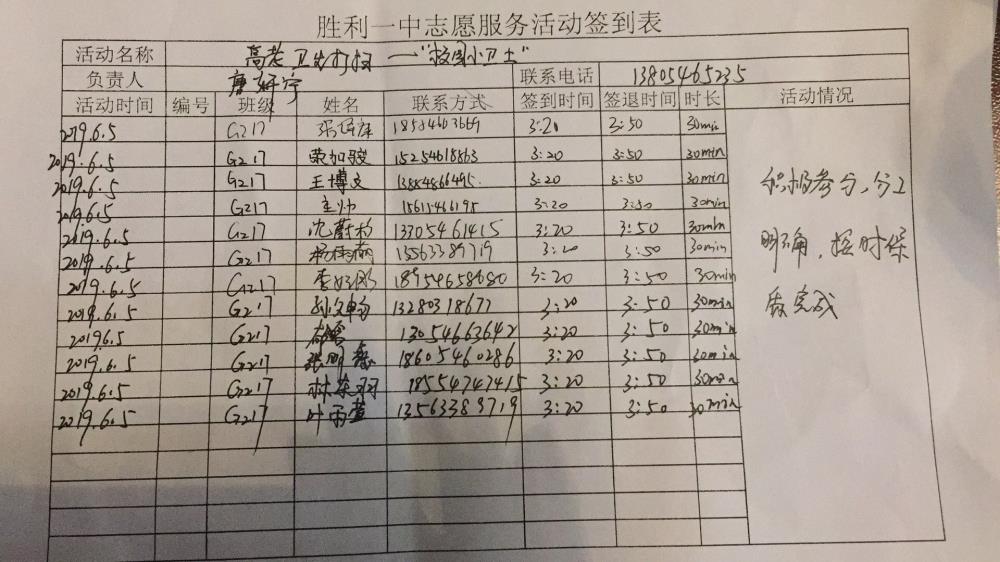 胜利一中志愿服务活动签到表
活动名称 "校园小卫士"
负责人 联系电话 13805465235
活动时间 编号 班级 姓名 联系方式 签到时间 签退时间 时长 活动情况
2019.6.5 G217 3:20 3:50 30min
2019.6.5 G217 15254618863 3:20 3:50 30min
2019.6.5 G217 王博文 13884866495 3:20 3:50 30min
2019.6.5 G217 15615466195 3:20 3:50 30min
2019.6.5 G217 13705461415 3:20 3:50 30min
2019.6.5 G217 13563389719 3:20 3:50 30min
2019.6.5 G217 18954658680 3:20 3:50 30min
2019.6.5 G217 13280318677 3:20 3:50 30min
2019.6.5 G217 13054663642 3:20 3:50 30min
2019.6.5 G217 18605460286 3:20 3:50 30min
2019.6.5 G217 18554747415 3:20 3:50 30min
2019.6.5 G217 叶雨萱 13563389719 3:20 3:50 30min
积极参与,分工
明确,按时保
质完成